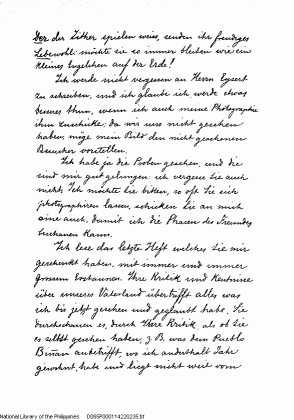 Der der Zither spielen weiss, senden ihr freudiges
Lebewohl: möchte sie so immer bleiben wie ein
kleines Engelchen auf der Erde!
Ich werde nicht vergessen an Herrn
zu schreiben, und ich glaube ich werde etwas
besseres thun, wenn ich auch meine Photographie
ihm zuschicke; da wir uns nicht gesehen
haben, möge mein Bild den nicht gesehenen
Besucher vorstellen.
Ich habe ja die Proben gesehen, und die
sind mir gut gelungen: ich vergesse Sie auch
nicht. Ich möchte Sie bitten, so oft Sie sich
photographiren lassen, schicken Sie an mich
eine auch, damit ich die Phasen des Freundes
beschauen kann.
Ich lese das letzte Heft welches Sie mir
geschenkt haben, mit immer und immer
grossem Erstaunen. Ihre Kritik und Kentnisse
über unseres Vaterland übertrifft alles was
ich bis jetzt gesehen und geglaubt habe. Sie
durchschauen es, durch Ihre Kritik als ob Sie
es selbst gesehen haben; z B was dem Pueblo
Biñan anbetrifft, wo ich anderthalb Jahr
gewohnt habe und liegt nicht weit vom
National Library of the Philippines D095F00011422023S.tif